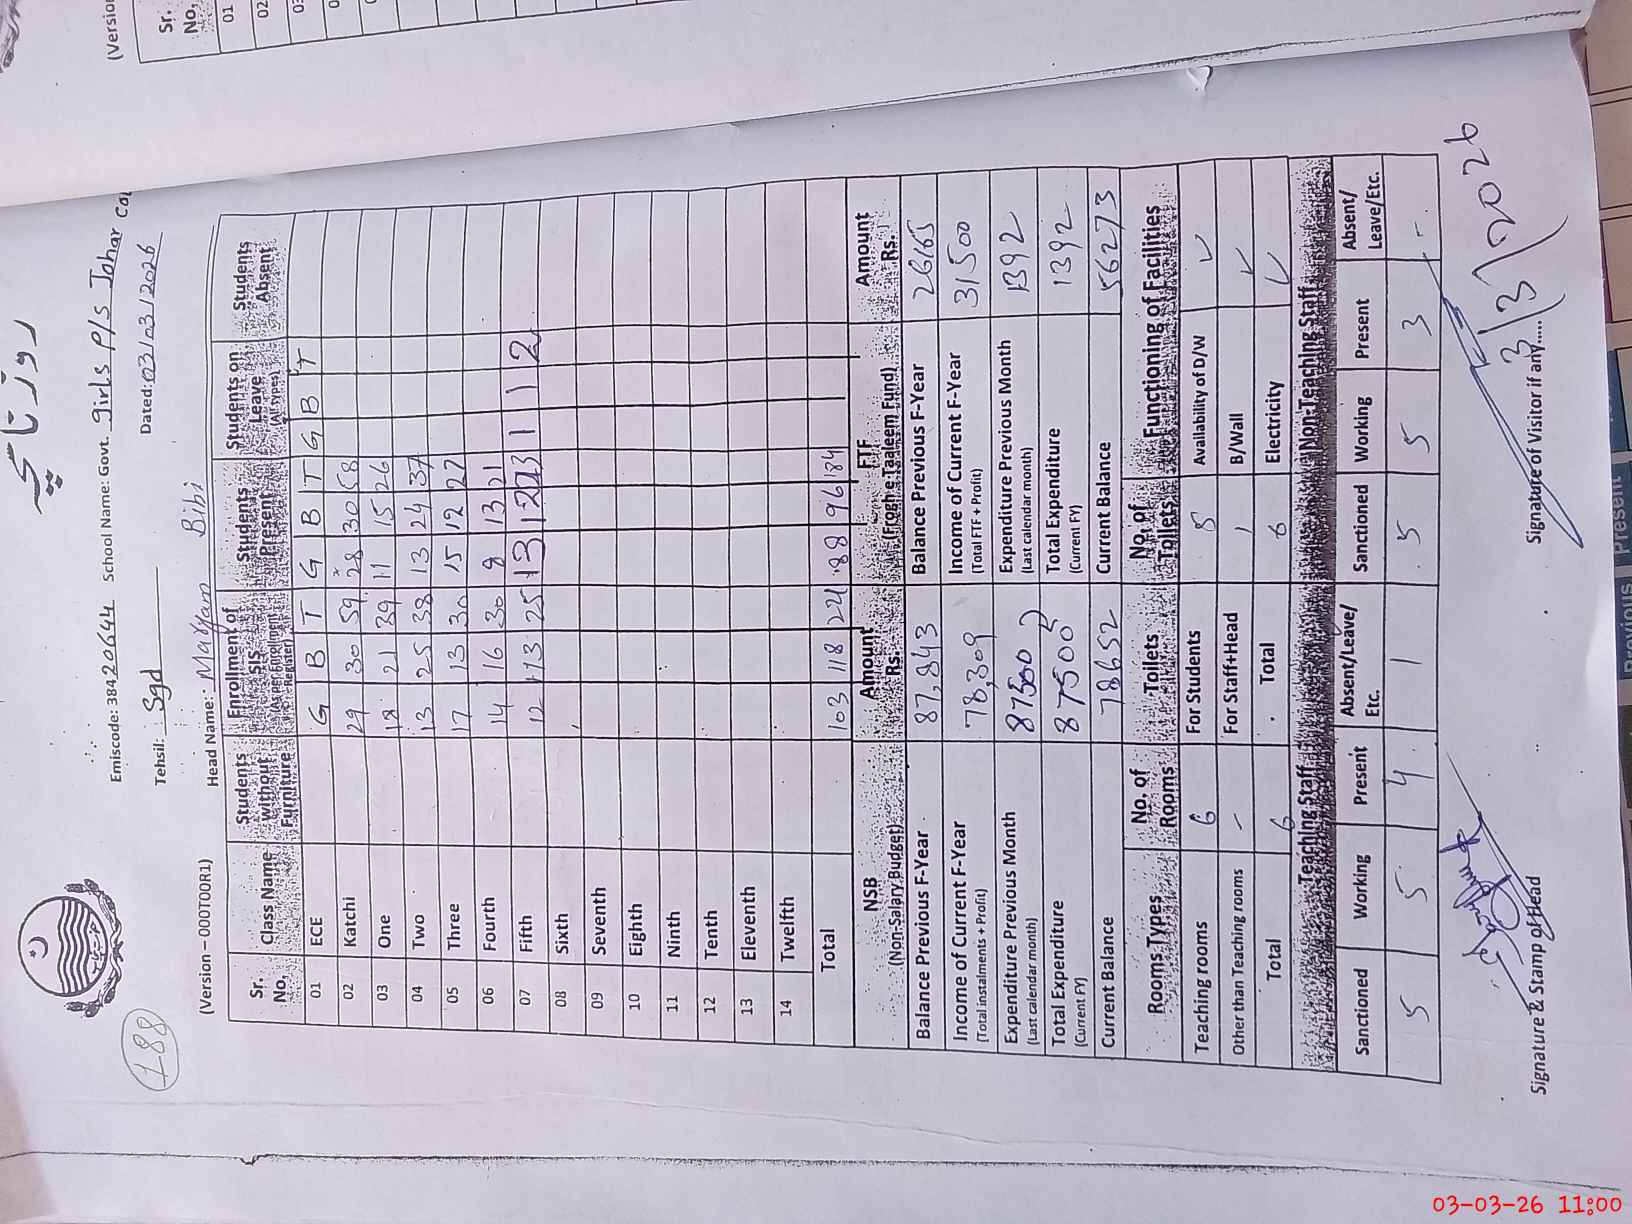 روزنامچہ
188
Emiscode: 38420644 School Name: Govt. Girls P/s Johar
Tehsil: Sgd Dated: 03/03/2026
(Version – 000T00R1) Head Name: Maryam Bibi
Sr. No, Class Name Students without Furniture Enrollment of SIS (As per Enrollment Register) Students Present Students on Leave (All types) Students Absent
G B T G B T G B T
01 ECE
02 Katchi 29 30 59 28 30 58
03 One 18 21 39 11 15 26
04 Two 13 25 38 13 24 37
05 Three 17 13 30 15 12 27
06 Fourth 14 16 30 8 13 21
07 Fifth 12 13 25 1 1 2
08 Sixth
09 Seventh
10 Eighth
11 Ninth
12 Tenth
13 Eleventh
14 Twelfth
Total 103 118 221 88 96 184
NSB (Non-Salary Budget) Amount Rs. FTF (Frogh-e-Taaleem Fund) Amount Rs.
Balance Previous F-Year 87,843 Balance Previous F-Year 26165
Income of Current F-Year (Total instalments + Profit) 78,309 Income of Current F-Year (Total FTF + Profit) 31500
Expenditure Previous Month (Last calendar month) 87500 Expenditure Previous Month (Last calendar month) 1392
Total Expenditure (Current FY) 87500 Total Expenditure (Current FY) 1392
Current Balance 78652 Current Balance 56273
Rooms Types No. of Rooms Toilets No. of Toilets Functioning of Facilities
Teaching rooms 6 For Students 5 Availability of D/W ✓
Other than Teaching rooms - For Staff+Head 1 B/Wall ✓
Total 6 Total 6 Electricity ✓
Teaching Staff Non-Teaching Staff
Sanctioned Working Present Absent/Leave/Etc. Sanctioned Working Present Absent/Leave/Etc.
5 5 4 1 5 5 3 -
Signature & Stamp of Head Signature of Visitor if any.....
3/3/2026
(Version
Sr. No,
01
02
Previous Present
03-03-26 11:00